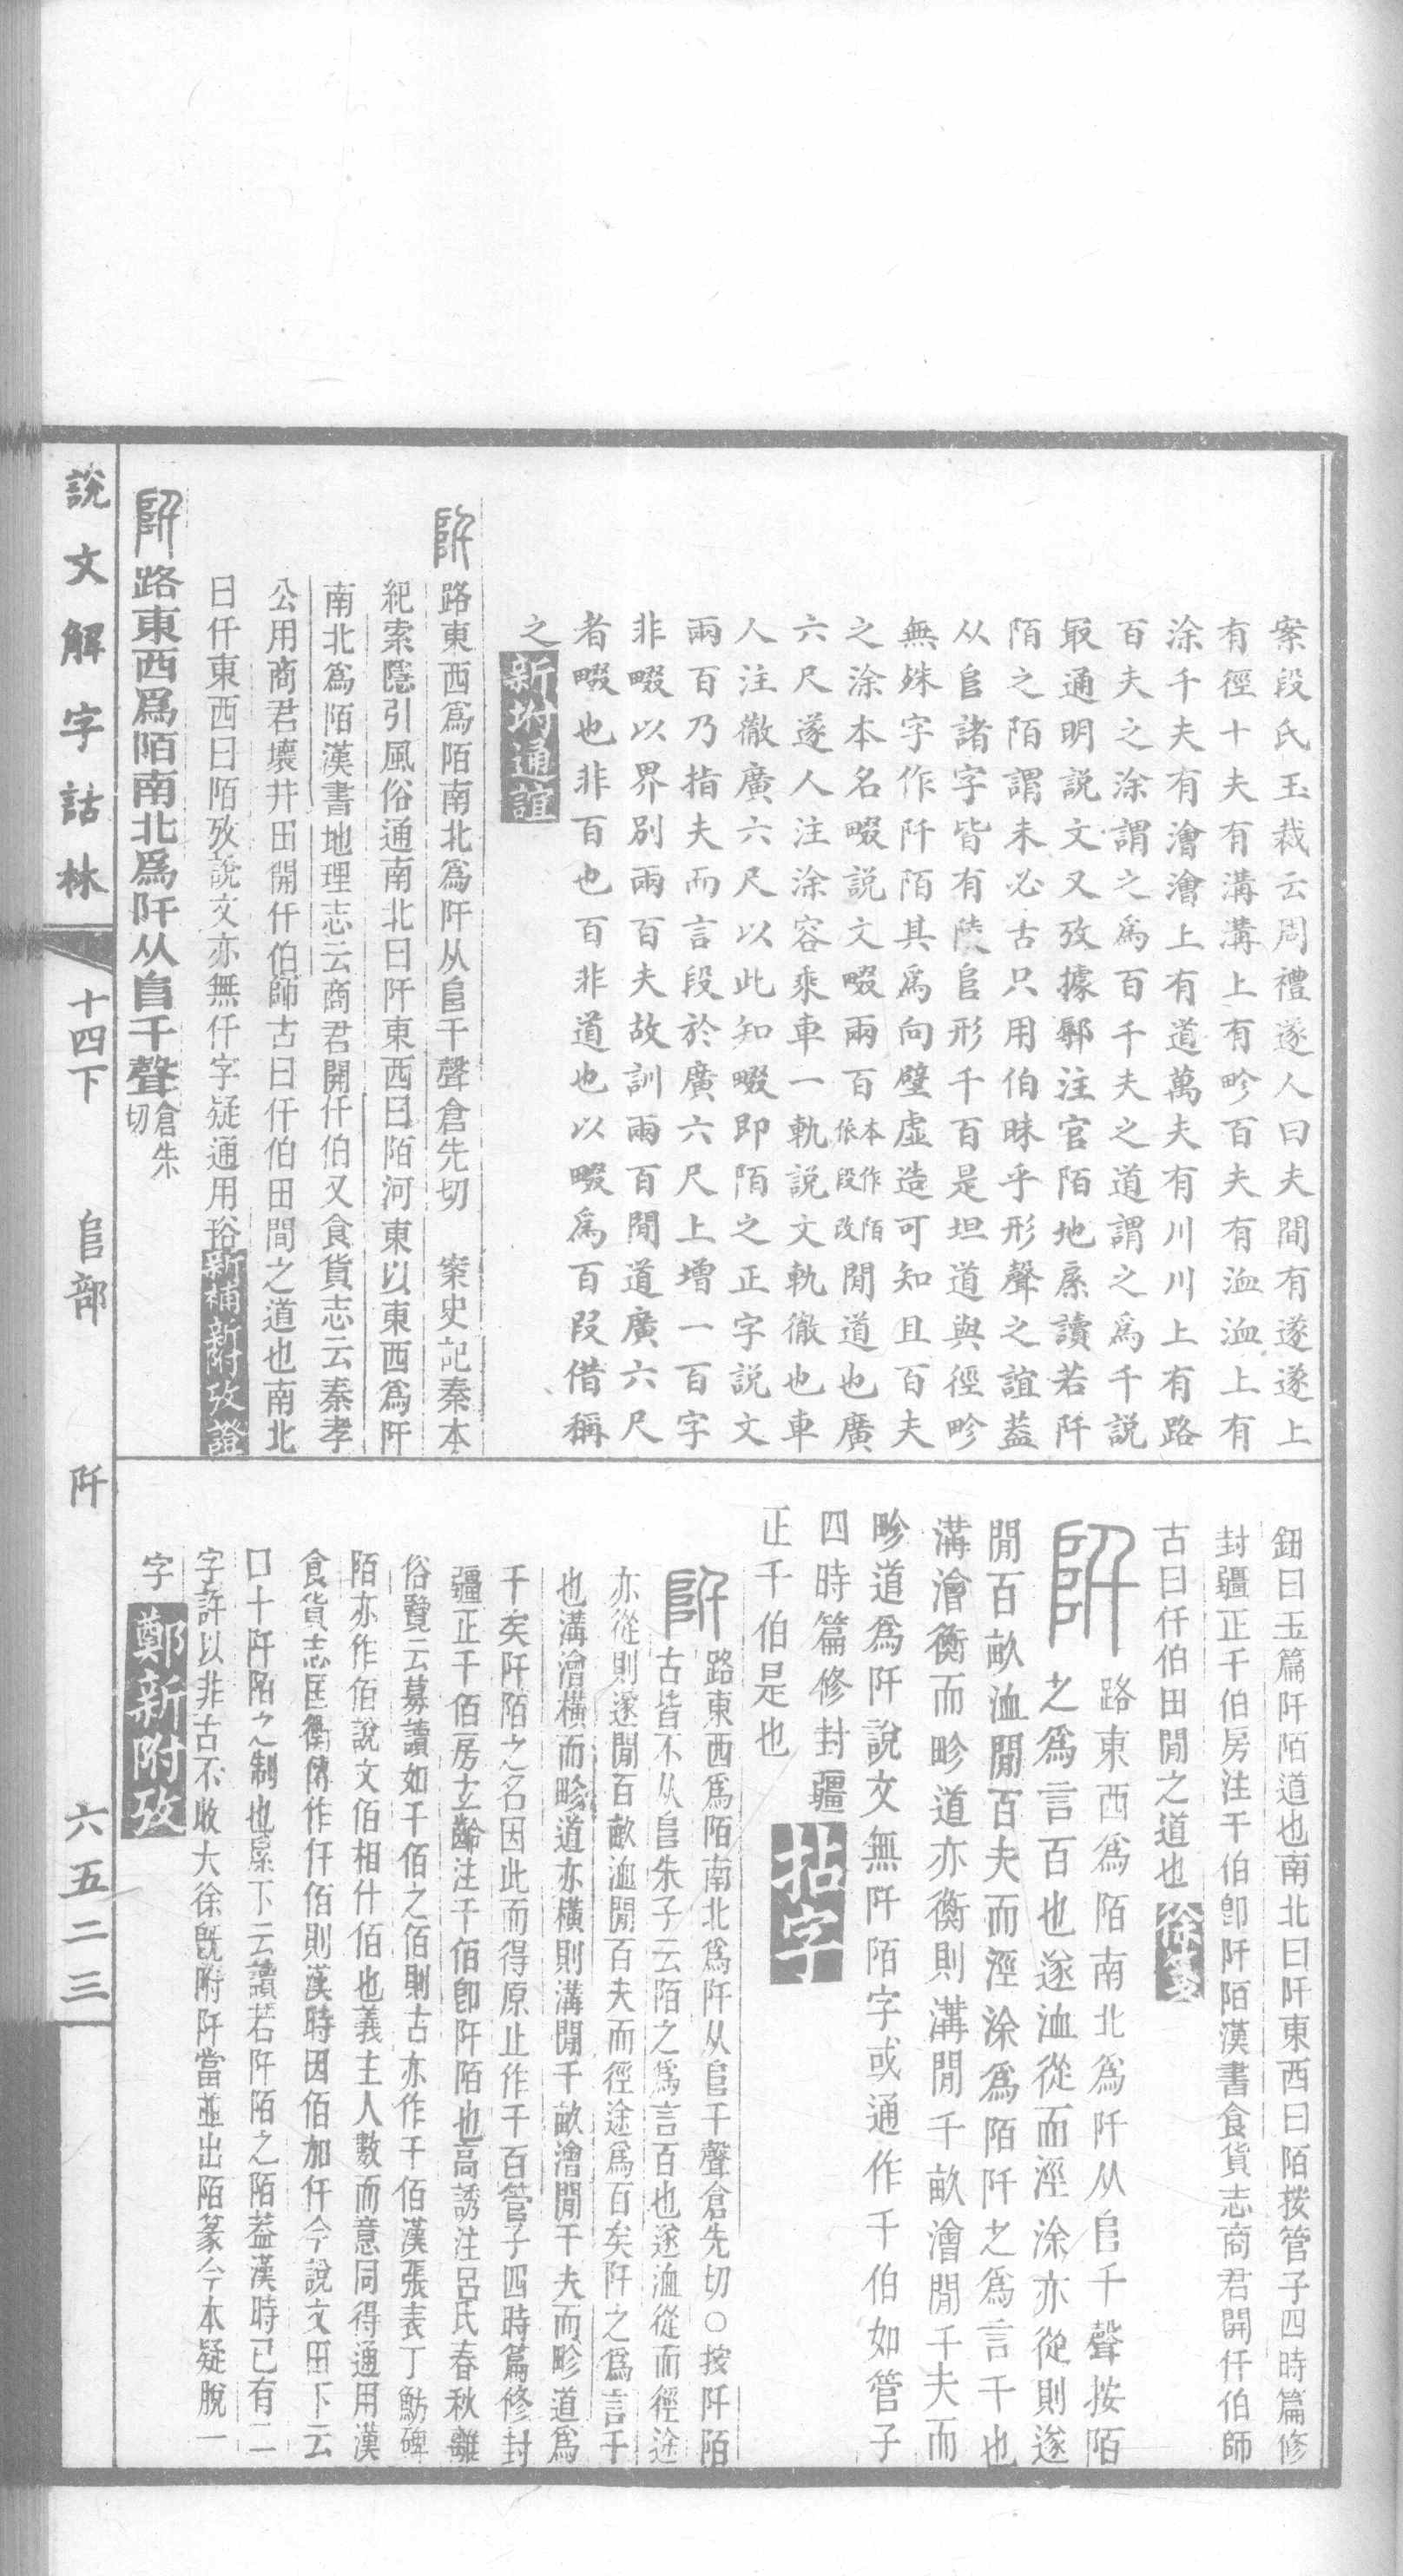 案段氏玉裁云周禮遂人曰夫間有遂遂上
有徑十夫有溝溝上有畛百夫有洫洫上有
涂千夫有澮澮上有道萬夫有川川上有路
百夫之涂謂之爲百千夫之道謂之爲千説
最通明説文又攷據鄢注官陌地㕆讀若阡
陌之陌謂未必古只用伯昧乎形聲之誼葢
从𨸏諸字皆有陵𨸏形千百是坦道與徑畛
無殊字作阡陌其爲向壁虛造可知且百夫
之涂本名畷説文畷兩百本作陌依段改閒道也廣
六尺遂人注涂容乘車一軌説文軌徹也車
人注徹廣六尺以此知畷即陌之正字説文
兩百乃指夫而言段於廣六尺上增一百字
非畷以界別兩百夫故訓兩百閒道廣六尺
者畷也非百也百非道也以畷爲百段借稱
之新坿通誼
阡路東西爲陌南北爲阡从𨸏千聲倉先切 案史記秦本
紀索隱引風俗通南北曰阡東西曰陌河東以東西爲阡
南北爲陌漢書地理志云商君開仟伯又食貨志云秦孝
公用商君壞井田開仟伯師古曰仟伯田間之道也南北
曰仟東西曰陌攷說文亦無仟字疑通用䜭新補新附攷證
阡路東西爲陌南北爲阡从𨸏千聲倉先切
鈕曰玉篇阡陌道也南北曰阡東西曰陌按管子四時篇修
封疆正千伯房注千伯卽阡陌漢書食貨志商君開仟伯師
古曰仟伯田閒之道也徐箋
阡路東西爲陌南北爲阡从𨸏千聲按陌
之爲言百也遂洫從而涇涂亦從則遂
閒百畝洫閒百夫而涇涂爲陌阡之爲言千也
溝澮衡而畛道亦衡則溝閒千畝澮閒千夫而
畛道爲阡說文無阡陌字或通作千伯如管子
四時篇修封疆
正千伯是也拈字
阡路東西爲陌南北爲阡从𨸏千聲倉先切○按阡陌
古皆不从𨸏朱子云陌之爲言百也遂洫從而徑途
亦從則遂閒百畝洫閒百夫而徑途爲百矣阡之爲言千
也溝澮橫而畛道亦橫則溝閒千畝澮閒千夫而畛道爲
千矣阡陌之名因此而得原止作千百管子四時篇修封
疆正千佰房玄齡注千佰卽阡陌也高誘注呂氏春秋離
俗覽云募讀如千佰之佰則古亦作千佰漢張表丁魴碑
陌亦作佰說文佰相什佰也義主人數而意同得通用漢
食貨志匡衡傳作仟佰則漢時因佰加仟今說文田下云
口十阡陌之制也㕆下云讀若阡陌之陌葢漢時已有二
字許以非古不收大徐旣附阡當並出陌篆今本疑脫一
字鄭新附攷
說文解字詁林 十四下 𨸏部 阡 六五二三